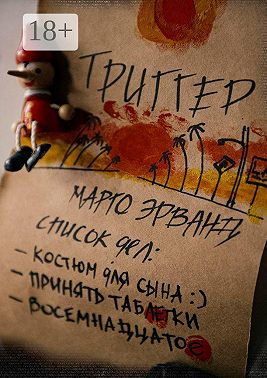 18+
ТРИГГЕР
МАРГО ЭРВАНД
СПИСОК ДЕЛ:
- КОСТЮМ ДЛЯ СЫНА :)
- ПРИНЯТЬ ТАБЛЕТКИ
- ВОСЕМНАДЦАТОЕ